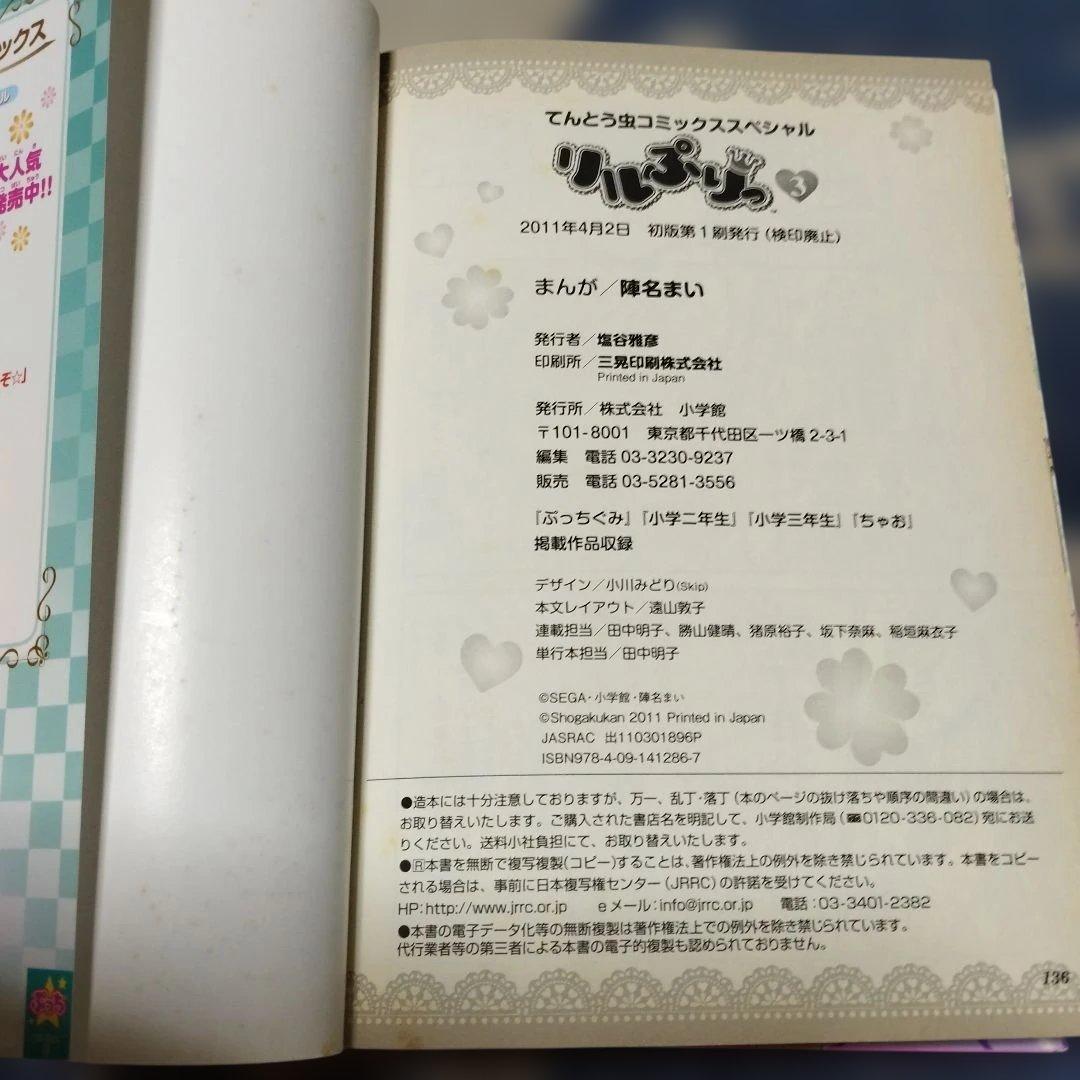 ックス
ル
大人気
発売中!!
ぞ☆」
ぷっち
てんとう虫コミックススペシャル
リルぷりっ 3
2011年4月2日 初版第1刷発行(検印廃止)
まんが/陣名まい
発行者/塩谷雅彦
印刷所/三晃印刷株式会社
Printed in Japan
発行所/株式会社 小学館
〒101-8001 東京都千代田区一ツ橋2-3-1
編集 電話03-3230-9237
販売 電話03-5281-3556
『ぷっちぐみ』『小学二年生』『小学三年生』『ちゃお』
掲載作品収録
デザイン/小川みどり(Skip)
本文レイアウト/遠山敦子
連載担当/田中明子、勝山健晴、猪原裕子、坂下奈麻、稲垣麻衣子
単行本担当/田中明子
©SEGA・小学館・陣名まい
©Shogakukan 2011 Printed in Japan
JASRAC 出110301896P
ISBN978-4-09-141286-7
●造本には十分注意しておりますが、万一、乱丁・落丁(本のページの抜け落ちや順序の間違い)の場合は、
お取り替えいたします。ご購入された書店名を明記して、小学館制作局(0120-336-082)宛にお送
りください。送料小社負担にて、お取り替えいたします。
●Ⓡ本書を無断で複写複製(コピー)することは、著作権法上の例外を除き禁じられています。本書をコピー
される場合は、事前に日本複写権センター(JRRC)の許諾を受けてください。
HP:http://www.jrrc.or.jp eメール:info@jrrc.or.jp 電話:03-3401-2382
●本書の電子データ化等の無断複製は著作権法上での例外を除き禁じられています。
代行業者等の第三者による本書の電子的複製も認められておりません。
136